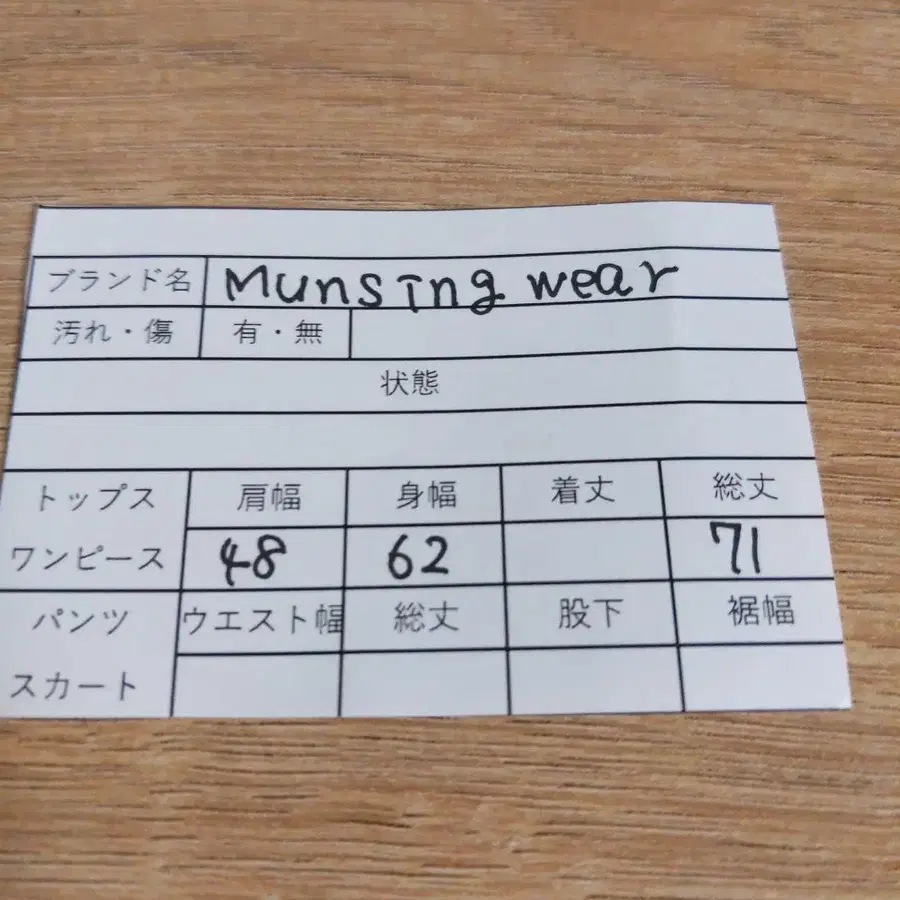 ブランド名 Munsing wear
汚れ・傷 有・無
状態
トップス 肩幅 身幅 着丈 総丈
ワンピース 48 62 71
パンツ ウエスト幅 総丈 股下 裾幅
スカート